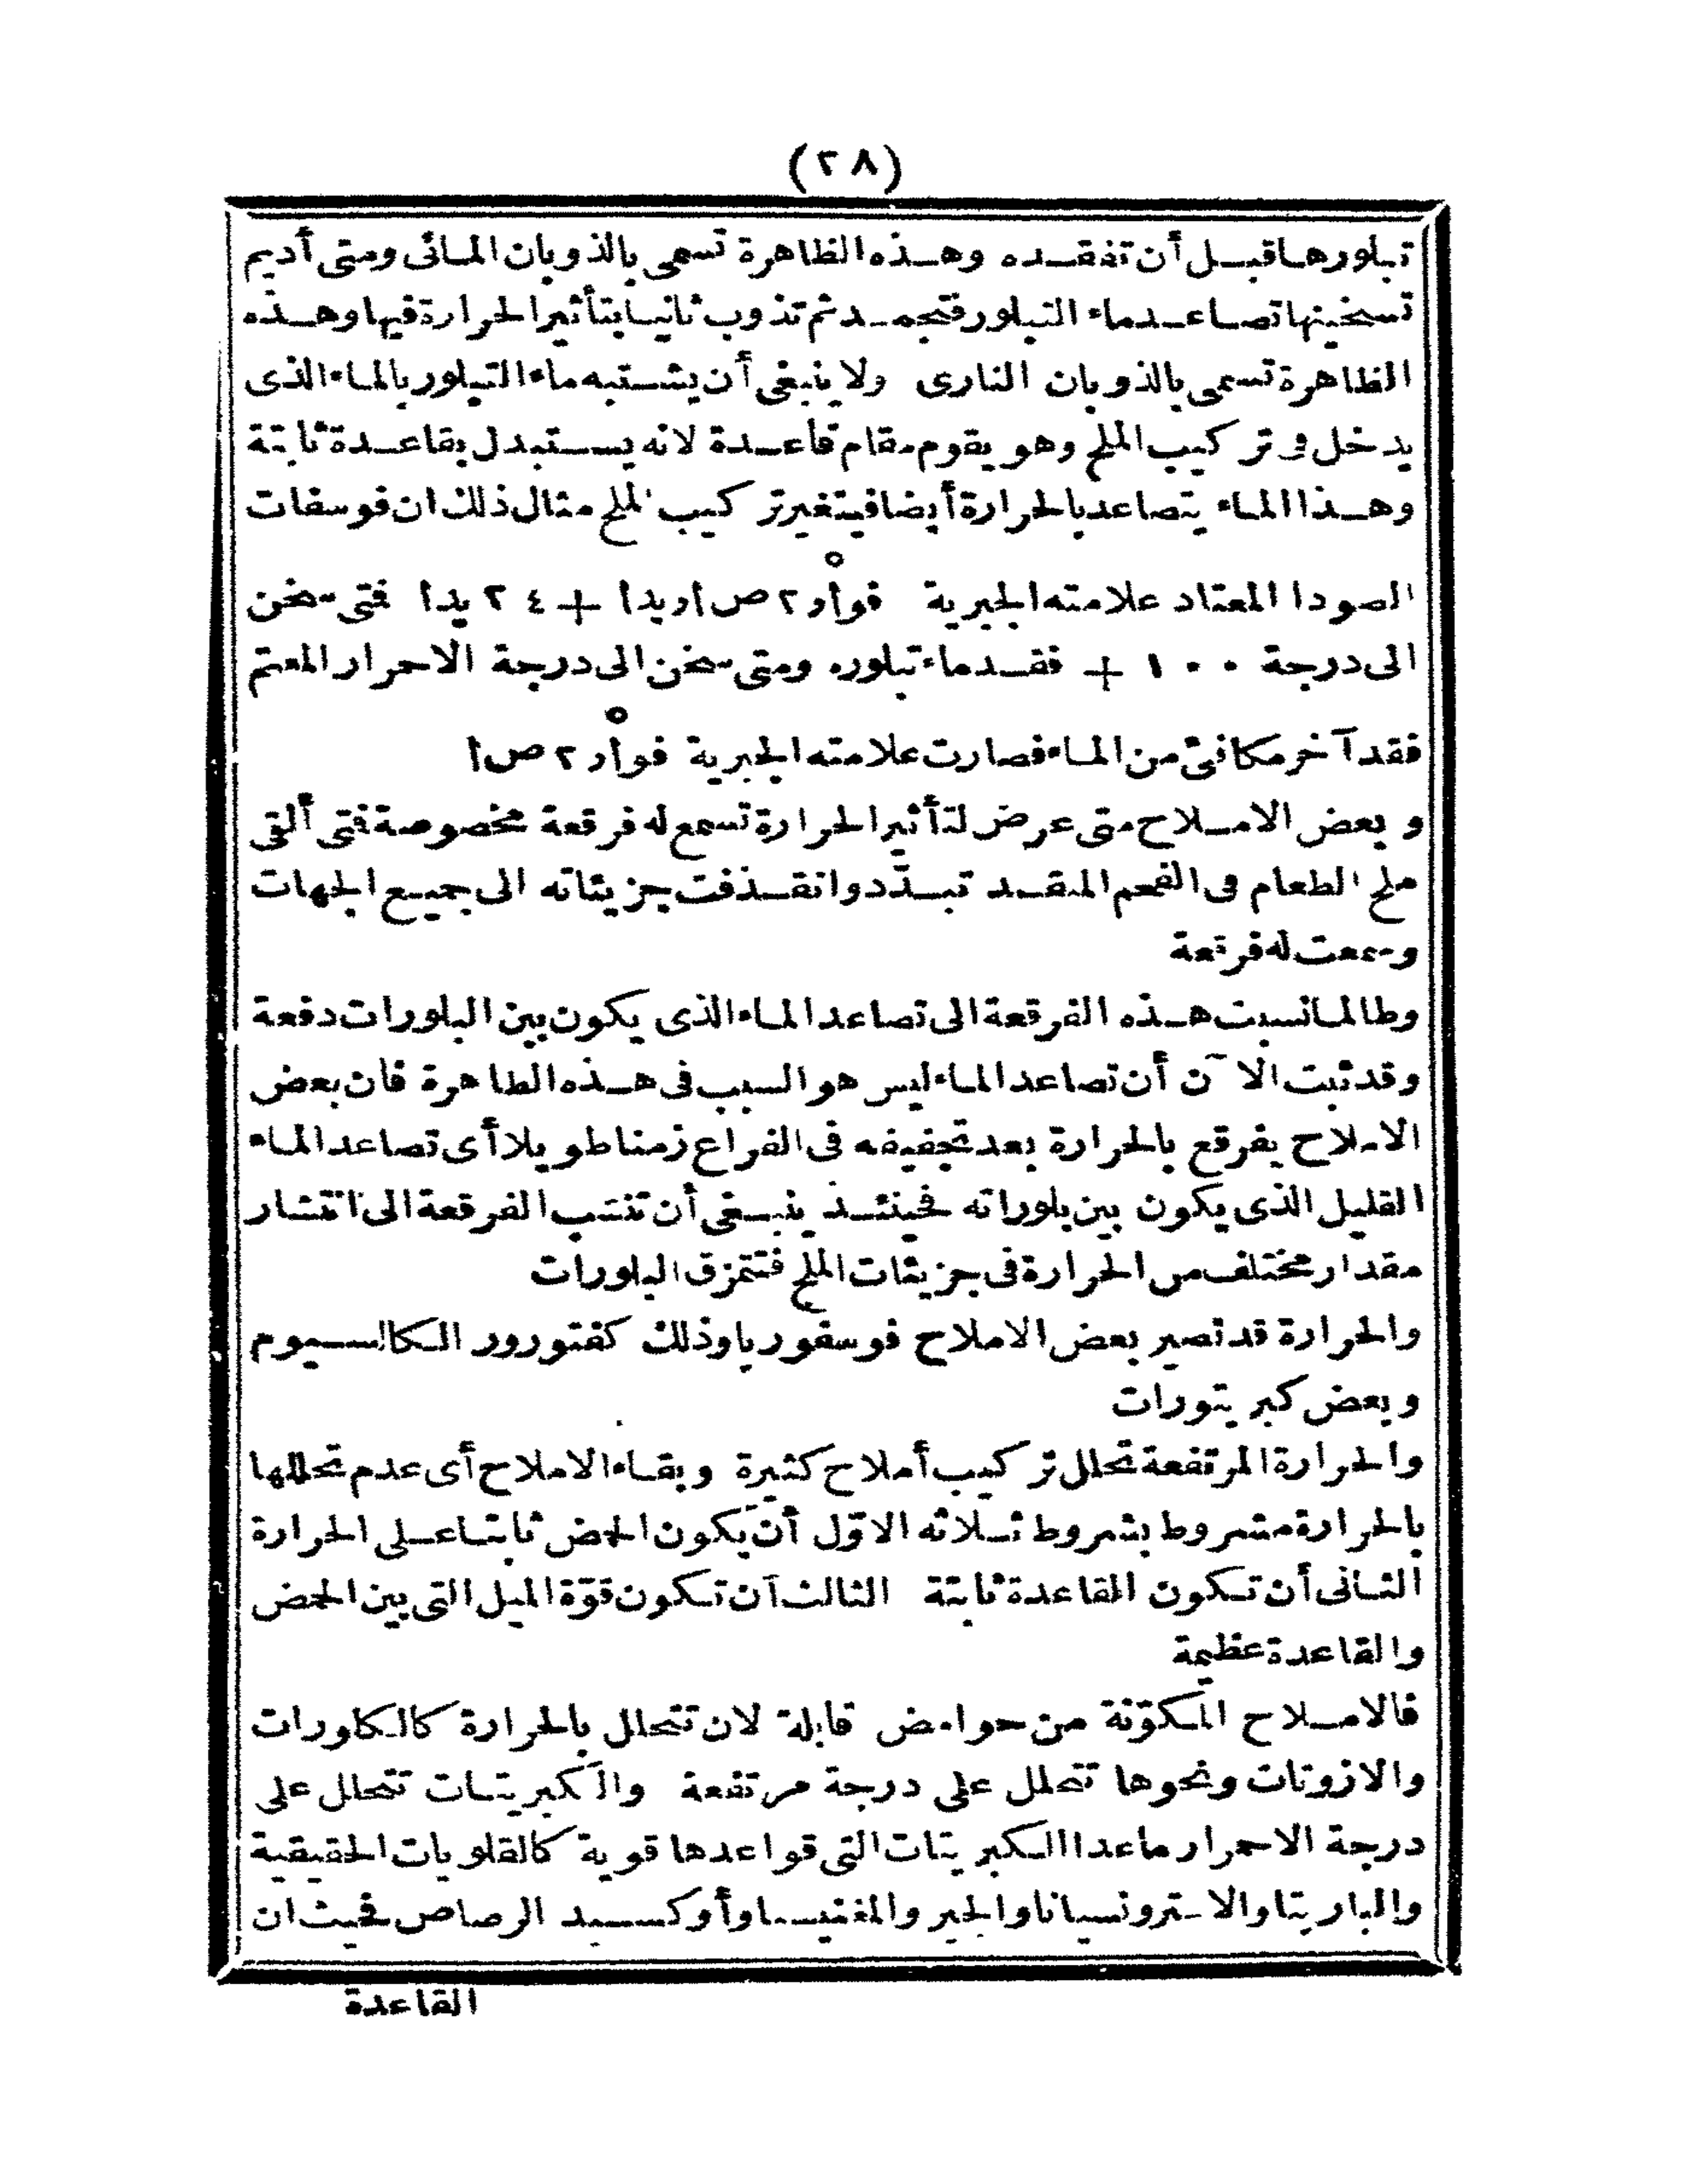 (٢٨)
تبلورها قبل أن تفقده وهذه الظاهرة تسمى بالذوبان المائى ومتى أديم
تسخينها تصاعد ماء التبلور فتجمد ثم تذوب ثانيا بتأثير الحرارة فيها وهذه
الظاهرة تسمى بالذوبان النارى ولا ينبغى أن يشتبه ماء التبلور بالماء الذى
يدخل فى تركيب الملح وهو يقوم مقام قاعدة لانه يستبدل بقاعدة ثابتة
وهذا الماء يتصاعد بالحرارة أيضا فيتغير تركيب الملح مثال ذلك ان فوسفات
الصودا المعتاد علامته الجبرية فوا٥ ر٢ ص ا ر يدا + ٢٤ يدا فتى سخن
الى درجة ١٠٠ + فقد ماء تبلوره ومتى سخن الى درجة الاحرار المعتم
فقد آخر مكافئ من الماء فصارت علامته الجبرية فوا٥ ر ٢ ص ا
وبعض الاملاح متى عرض لتأثير الحرارة تسمع له فرقعة مخصوصة فتى ألقى
ملح الطعام فى الفحم المتقد تبدّد وانقذفت جزيئاته الى جميع الجهات
وسمعت له فرقعة
وطالما نسبت هذه الفرقعة الى تصاعد الماء الذى يكون بين البلورات دفعة
وقد ثبت الآن أن تصاعد الماء ليس هو السبب فى هذه الظاهرة فان بعض
الاملاح يفرقع بالحرارة بعد تجفيفه فى الفراغ زمنا طويلا أى تصاعد الماء
القليل الذى يكون بين بلوراته فحينئذ ينبغى أن تنسب الفرقعة الى انتشار
مقدار مختلف من الحرارة فى جزيئات الملح فتتمزق البلورات
والحرارة قد تصير بعض الاملاح فوسفوريا وذلك كفتورور الكالسيوم
وبعض كبريتورات
والحرارة المرتفعة تحلل تركيب أملاح كثيرة وبقاء الاملاح أى عدم تحللها
بالحرارة مشروط بشروط ثلاثه الاوّل أن يكون الحمض ثابتا على الحرارة
الثانى أن تكون القاعدة ثابتة الثالث أن تكون قوّة الميل التى بين الحمض
والقاعدة عظيمة
فالاملاح المكوّنة من حوامض قابلة لان تتحلل بالحرارة كالكلورات
والازوتات ونحوها تتحلل على درجة مرتفعة والكبريتات تتحلل على
درجة الاحمرار ماعدا الكبريتات التى قواعدها قوية كالقلويات الحقيقية
والباريتا والاسترونسيانا والجير والمغنيسيا وأوكسيد الرصاص فحيث ان
القاعدة